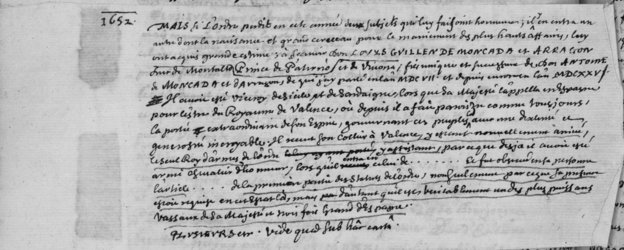 1652.
MAIS si l'ordre perdit en cete année deux subjets qui luy faisoint honneur, il en entra un
autre dont la naissance et grand cerveau pour le maniement des plus hauts affairs, luy
ont acquis grande estime, à sçavoir Don LOUYS GUILLEN DE MONCADA et ARRAGON
duc de Montalto, Prince de Paterno, et de Viuona, fils unique et successeur de Don ANTOINE
de MONCADA et d'Arragon, de qui j'ay parlé en l'an MDCVII et depuis encore en l'an MDCXXV
Il avoit esté viceroy de Sicile et de Sardaigne, lors que sa Majesté l'appella en Espagne
pour estre du Royaume de Valence, où depuis il a fait paroistre comme tousjours,
la portée extraordinaire de son Esprit, gouvernant ces peuples avec une dexterité et
generosité incroyable. Il receut son Collier à Valence, y estant nouvellement arrivé,
le seul Roy d'armes de l'ordre par ce que desja il avoit esté
armé Chevalier d'honneur, lors qu'il celui de ..... Ce fut observé en sa personne
l'article ..... de la premiere partie des statuts de l'ordre, non seulement par ce que sa
estoit requise en cet estat là, mais d'autant qu'il est veritablement un des plus puissans
vassaux de sa Majesté et trois fois Grand d'Espagne.
PLUSIEURS etc. vide quod sub hac carta